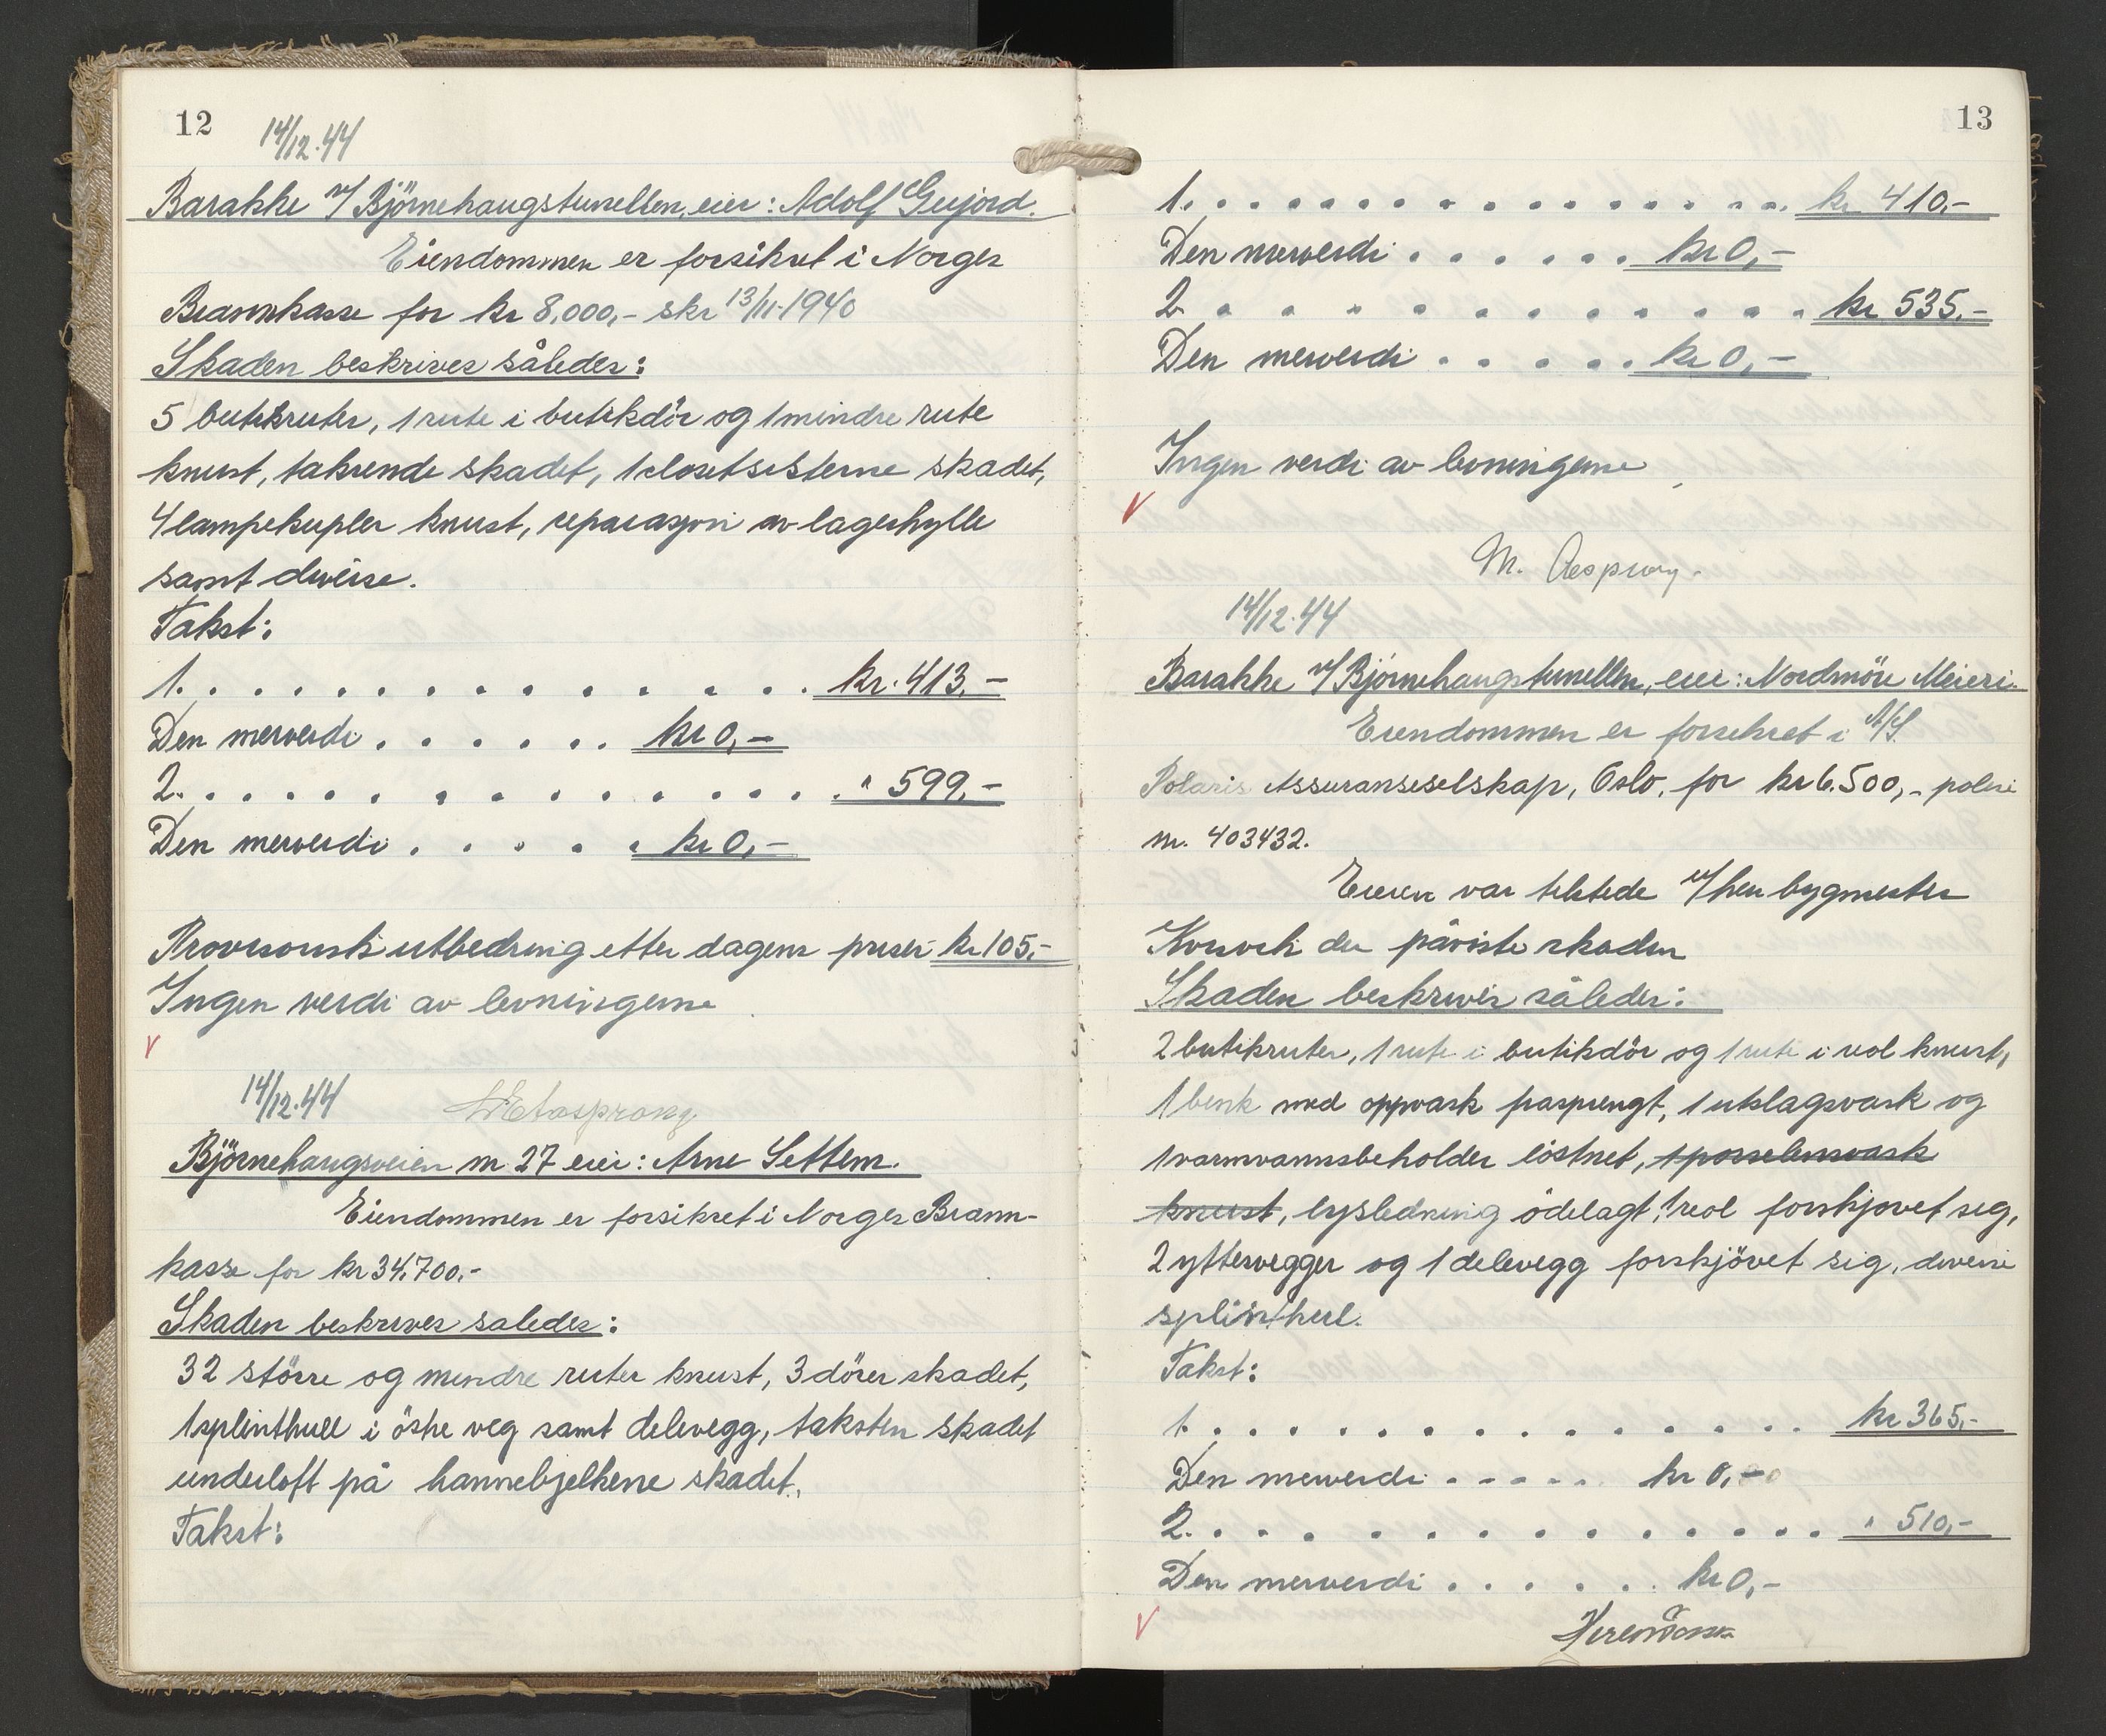 12
14/12.44
Barakke v/Björnehaugstunellen, eier: Adolf Gujord.
Eiendommen er forsikret i Norges
Brannkasse for kr 8,000,- skr 13/11-1940
Skaden beskrives således:
5 butikkruter, 1 rute i butikdör og 1 mindre rute
knust, takrende skadet, 1 closetsisterne skadet,
4 lampekupler knust, reparasjon av lagerhylle
samt diverse.
Takst:
1. . . . . . . . . . . . . . kr. 413.-
Den merverdi . . . . . . kr 0,-
2. . . . . . . . . . . . . . " 599.-
Den merverdi . . . . . kr 0,-
Provisorisk utbedring etter dagens priser kr 105,-
Ingen verdi av levningerne
V
14/12.44
Björnehaugsveien nr 27 eier: Arne Settem.
Eiendommen er forsikret i Norges Brann-
kasse for kr 34.700.-
Skaden beskrives saledes:
32 större og mindre ruter knust, 3 dörer skadet,
1 splinthull i östre veg samt delevegg, taksten skadet
underloft på hannebjelkene skadet.
Takst:
13
1. . . . . . . . . . . . . . . kr 410,-
Den merverdi . . . . . . kr 0,-
2 . . . . . . . . . . . . kr 535.-
Den merverdi . . . . . kr 0,-
Ingen verdi av levningerne
V
M.
14/12.44
Barakke v/Björnehaugstunellen, eier: Nordmöre Meieri
Eiendommen er forsikret i A/S.
Polaris Assuranseselskap, Oslo, for kr 6.500,- polise
nr. 403432.
Eieren var tilstede v/herr bygmester
der påviste skaden
Skaden beskrives således:
2 butikruter, 1 rute i butikdör og 1 rute i reol knust,
1 benk med oppvask frasprengt, 1 utslagsvask og
1 varmvannsbeholder löstnet, 1 porselensvask
knust, lysledning ödelagt, 1 reol forskjövet seg,
2 yttervegger og 1 delevegg forskjövet sig, diverse
splinthull.
Takst:
1. . . . . . . . . . . . . . . kr 365,-
Den merverdi - - - - . kr 0,-
2. . . . . . . . . . . . . . " 510,-
Den merverdi . . . . . . kr 0,-
V